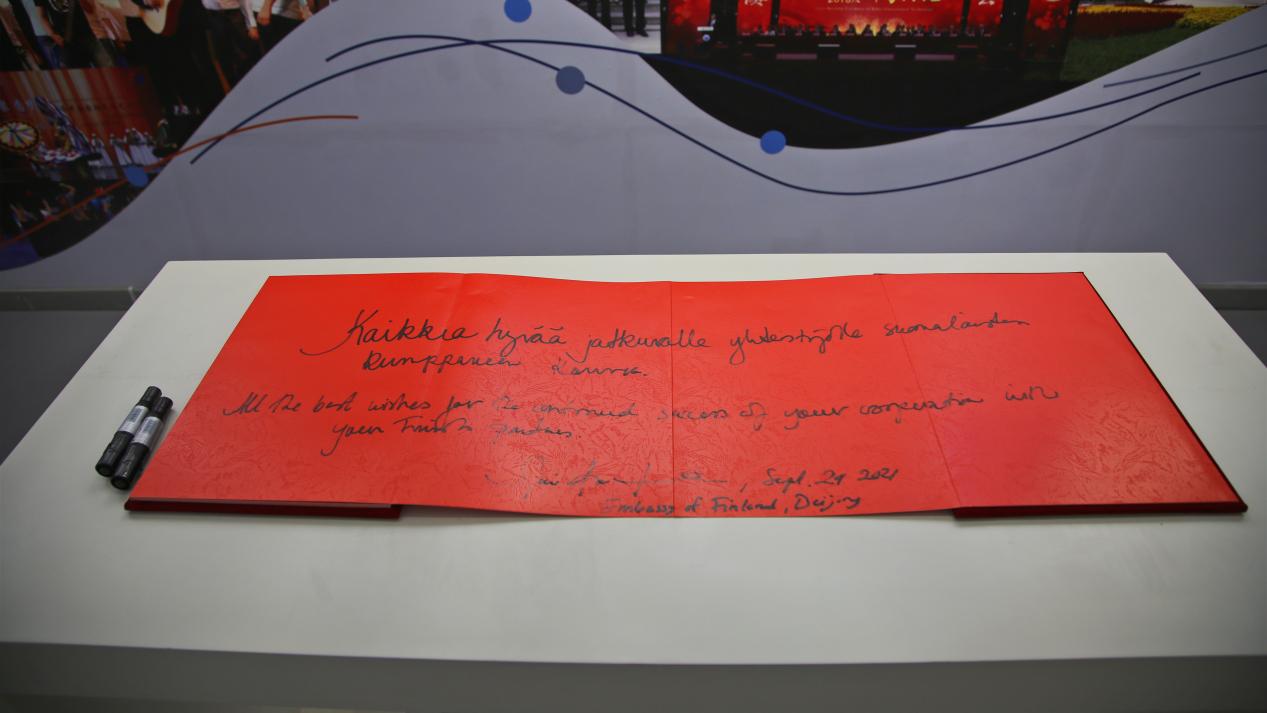 Kaikkea hyvää jatkuvalle yhteistyölle suomalaisten
kumppanien kanssa.
All the best wishes for the continued success of your cooperation with
your Finnish partners.
, Sept. 29 2021
Embassy of Finland, Beijing